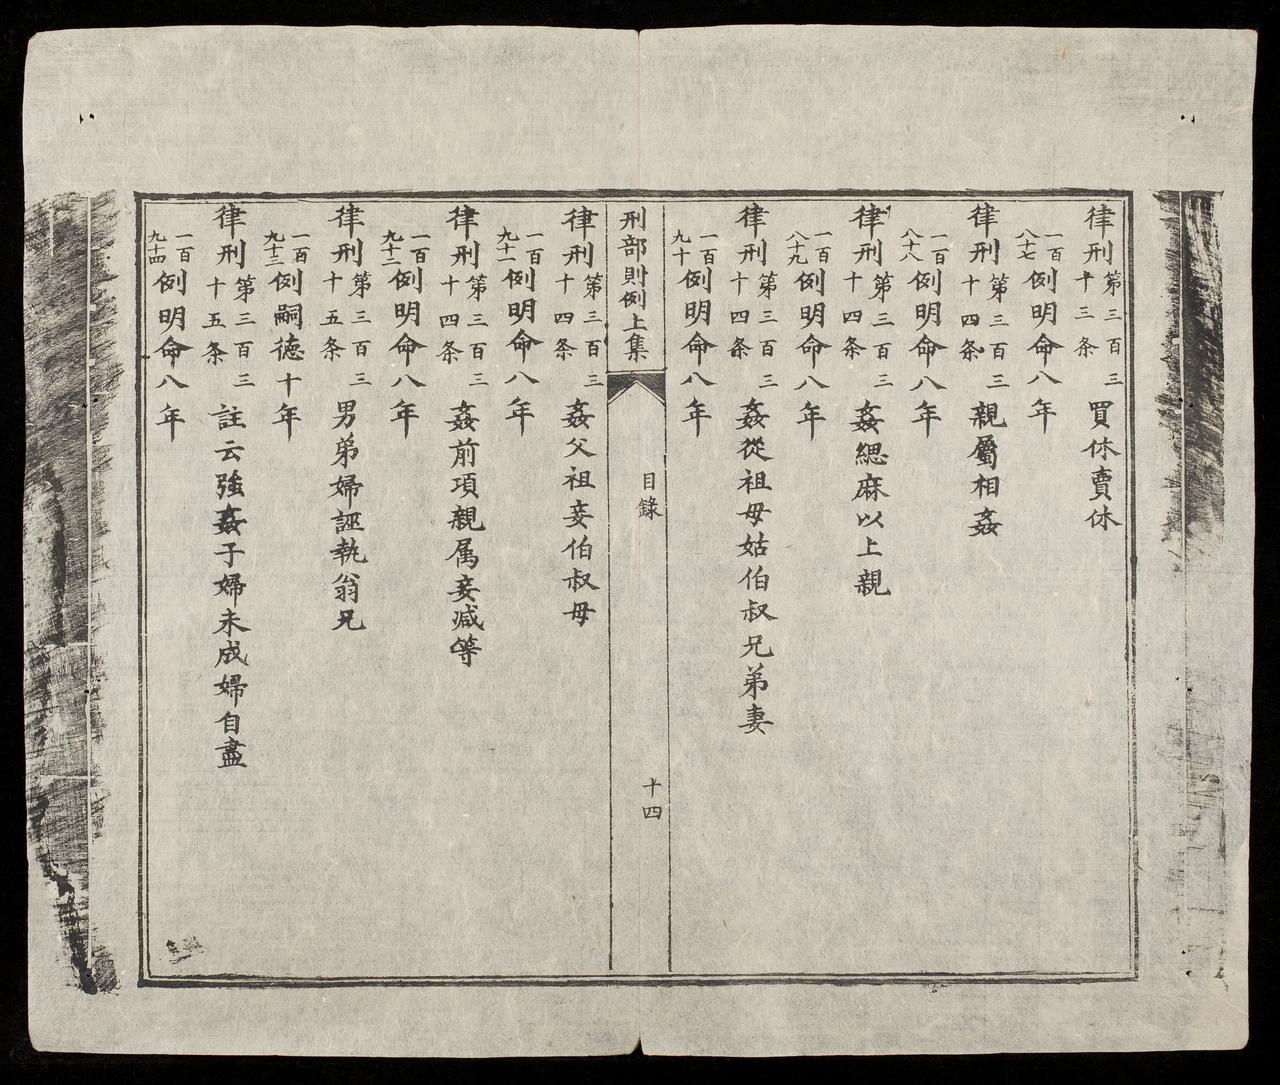 律刑第三百三十三条買休賣休
一百八十七例明命八年
律刑第三百三十四条親屬相姦
一百八十八例明命八年
律刑第三百三十四条姦緦麻以上親
一百八十九例明命八年
律刑第三百三十四条姦從祖母姑伯叔兄弟妻
一百九十例明命八年
刑部則例上集 目錄 十四
律刑第三百三十四条姦父祖妾伯叔母
一百九十一例明命八年
律刑第三百三十四条姦前項親属妾减等
一百九十二例明命八年
律刑第三百三十五条男弟婦誣執翁兄
一百九十三例嗣德十年
律刑第三百三十五条註云強姦子婦未成婦自盡
一百九十四例明命八年